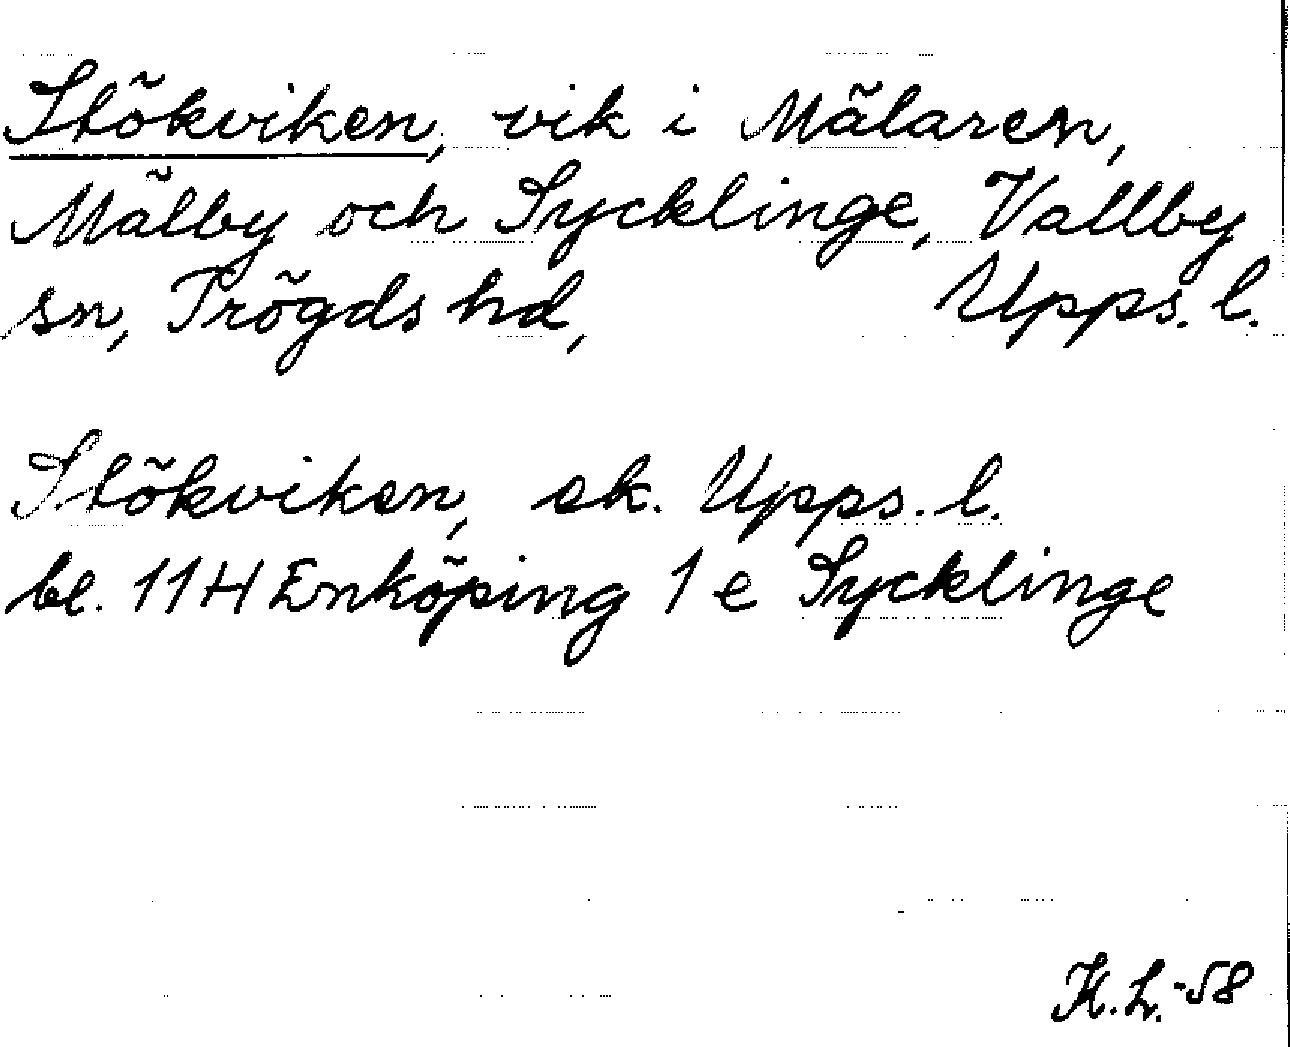 Stökviken, vik i Mälaren,
Mälby och Sycklinge, Vallby
sn, Trögds hd, Upps. l.
Stökviken, ek. Upps. l.
bl. 11H Enköping 1 e Sycklinge
K. L. -58